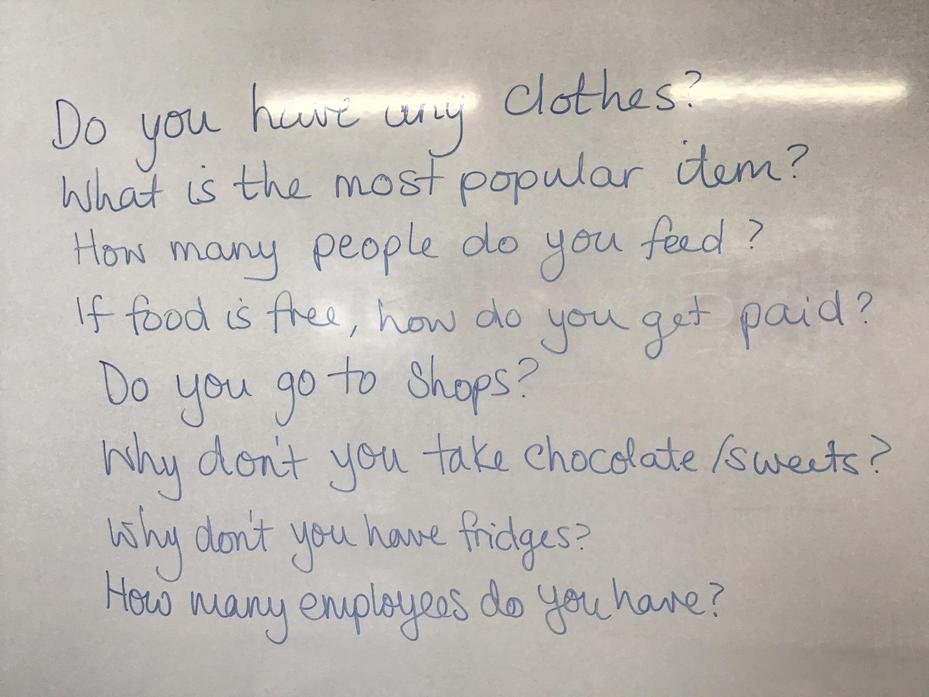 Do you have any clothes?
What is the most popular item?
How many people do you feed?
If food is free, how do you get paid?
Do you go to Shops?
Why don't you take chocolate/sweets?
Why don't you have fridges?
How many employees do you have?